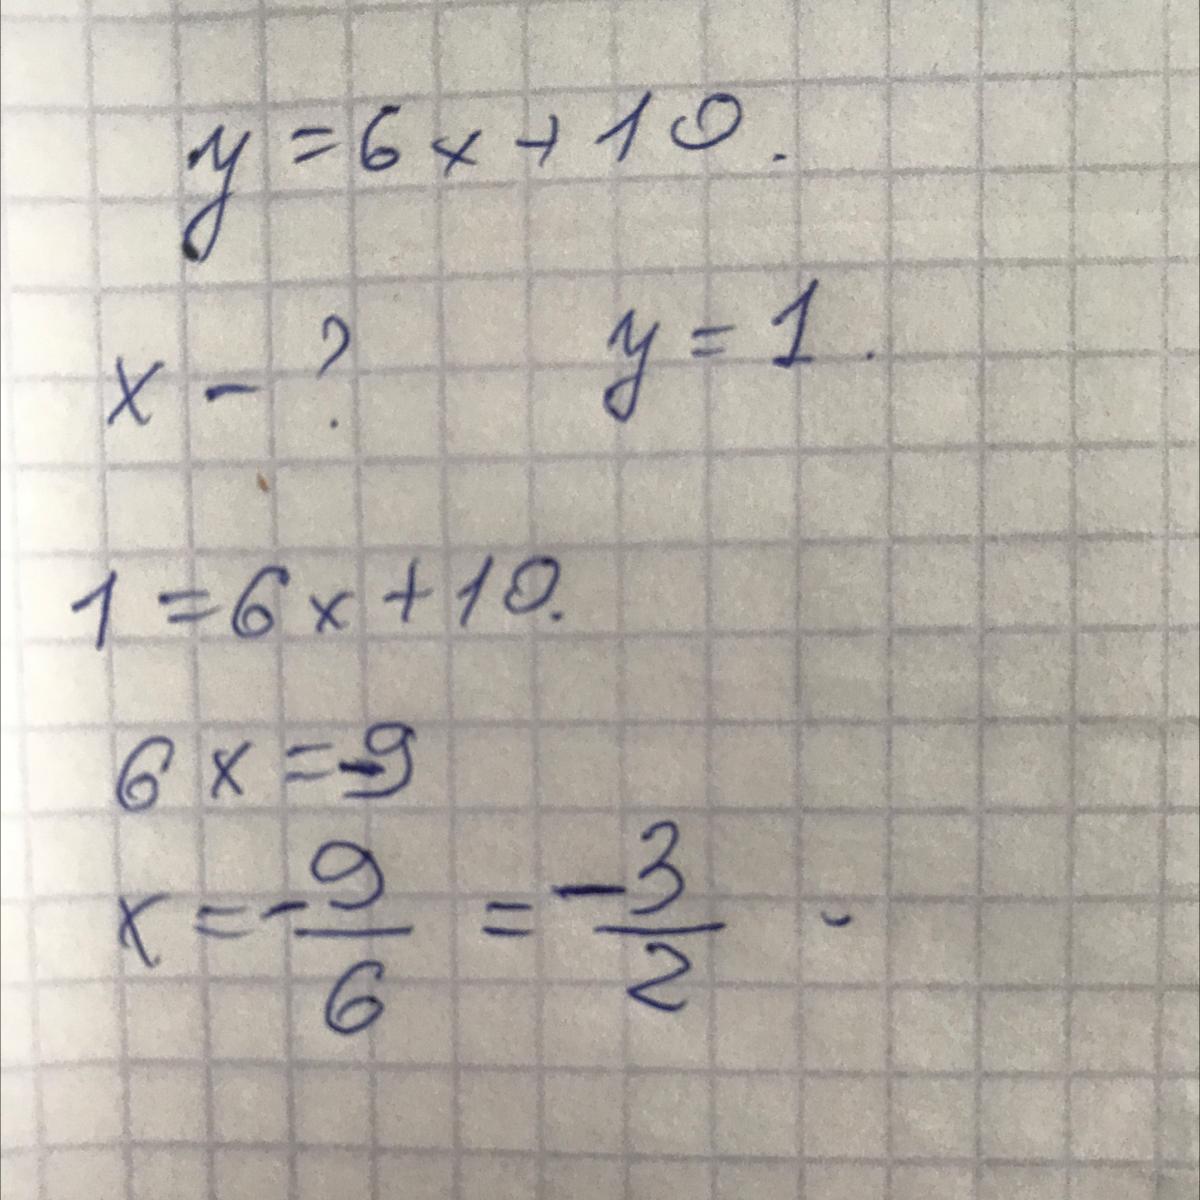 y = 6x + 10.
x - ? y = 1.
1 = 6x + 10.
6x = -9
x = -9/6 = -3/2 -